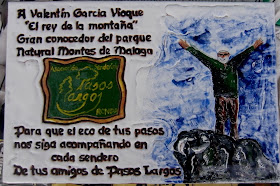 A Valentín García Vioque
"El rey de la montaña"
Gran conocedor del parque
Natural Montes de Malaga
Pasos
Largos
Para que el eco de tus pasos
nos siga acompañando en
cada sendero
De tus amigos de Pasos Largos